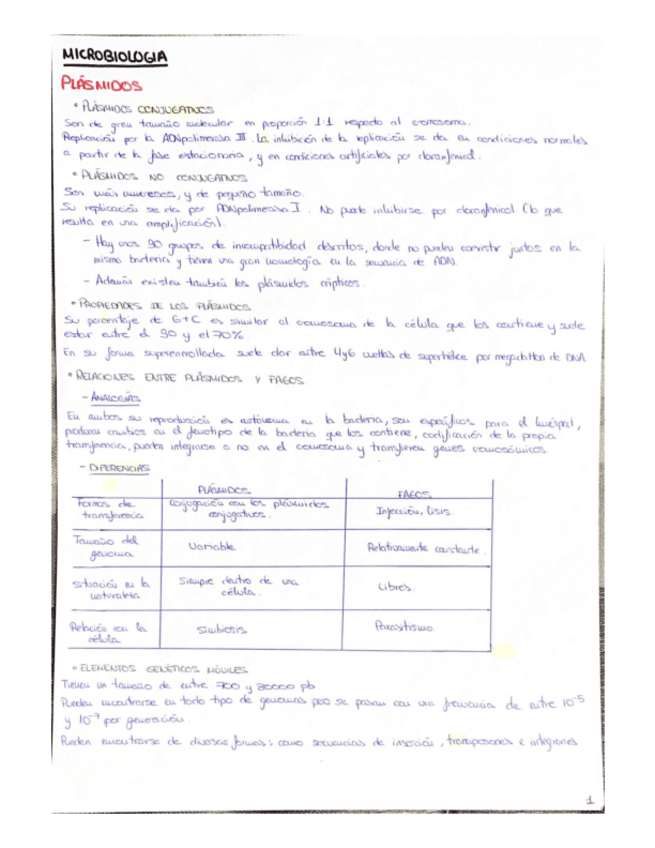 MICROBIOLOGIA
PLÁSMIDOS
• PLÁSMIDOS CONJUGATIVOS
Son de gran tamaño molecular en proporción 1:1 respecto al cromosoma.
Replicación por la ADNpolimerasa III. La inhibición de la replicación se da en condiciones normales
a partir de la fase estacionaria, y en condiciones artificiales por cloranfenicol.
• PLÁSMIDOS NO CONJUGATIVOS
Son más numerosos, y de pequeño tamaño.
Su replicación se da por ADNpolimerasa I. No puede inhibirse por cloranfenicol (lo que
resulta en una amplificación).
- Hay unos 30 grupos de incompatibilidad descritos, donde no pueden coexistir juntos en la
misma bacteria y tienen una gran homología en la secuencia de ADN.
- Además existen también los plásmidos crípticos.
• PROPIEDADES DE LOS PLÁSMIDOS
Su porcentaje de G+C es similar al cromosoma de la célula que los contiene y suele
estar entre el 30 y el 70%
En su forma superenrollada suele dar entre 4 y 6 vueltas de superhélice por megadalton de DNA
• RELACIONES ENTRE PLÁSMIDOS Y FAGOS
- ANALOGÍAS
En ambos su reproducción es autónoma en la bacteria, son específicos para el huésped,
producen cambios en el fenotipo de la bacteria que los contiene, codificación de la propia
transferencia, pueden integrarse o no en el cromosoma y transfieren genes cromosómicos.
- DIFERENCIAS
PLÁSMIDOS FAGOS
Formas de transferencia Conjugación con los plásmidos conjugativos. Inyección, lisis.
Tamaño del genoma Variable Relativamente constante.
Situación en la naturaleza Siempre dentro de una célula. Libres.
Relación con la célula Simbiosis Parasitismo.
• ELEMENTOS GENÉTICOS MÓVILES
Tienen un tamaño de entre 700 y 20000 pb
Pueden encontrarse en todo tipo de genomas pero se pasan con una frecuencia de entre 10⁻⁵
y 10⁻⁷ por generación.
Pueden encontrarse de diversas formas: como secuencias de inserción, transposones e integrones
1